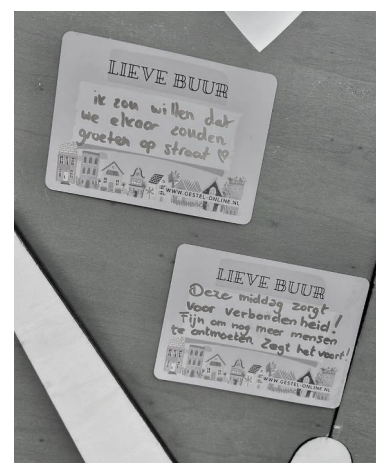 LIEVE BUUR
ik zou willen dat
we elkaar zouden
groeten op straat ♡
WWW.GESTEL-ONLINE.NL
LIEVE BUUR
Deze middag zorgt
voor verbondenheid!
Fijn om nog meer mensen
te ontmoeten Zegt het voort!
WWW.GESTEL-ONLINE.NL